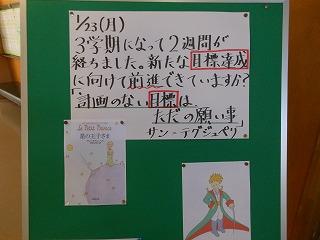 1/23(月)
3学期になって2週間が
経ちました。新たな目標達成
に向けて前進できていますか?
「計画のない目標は、
ただの願い事」
サン=テグジュペリ
Le Petit Prince
星の王子さま